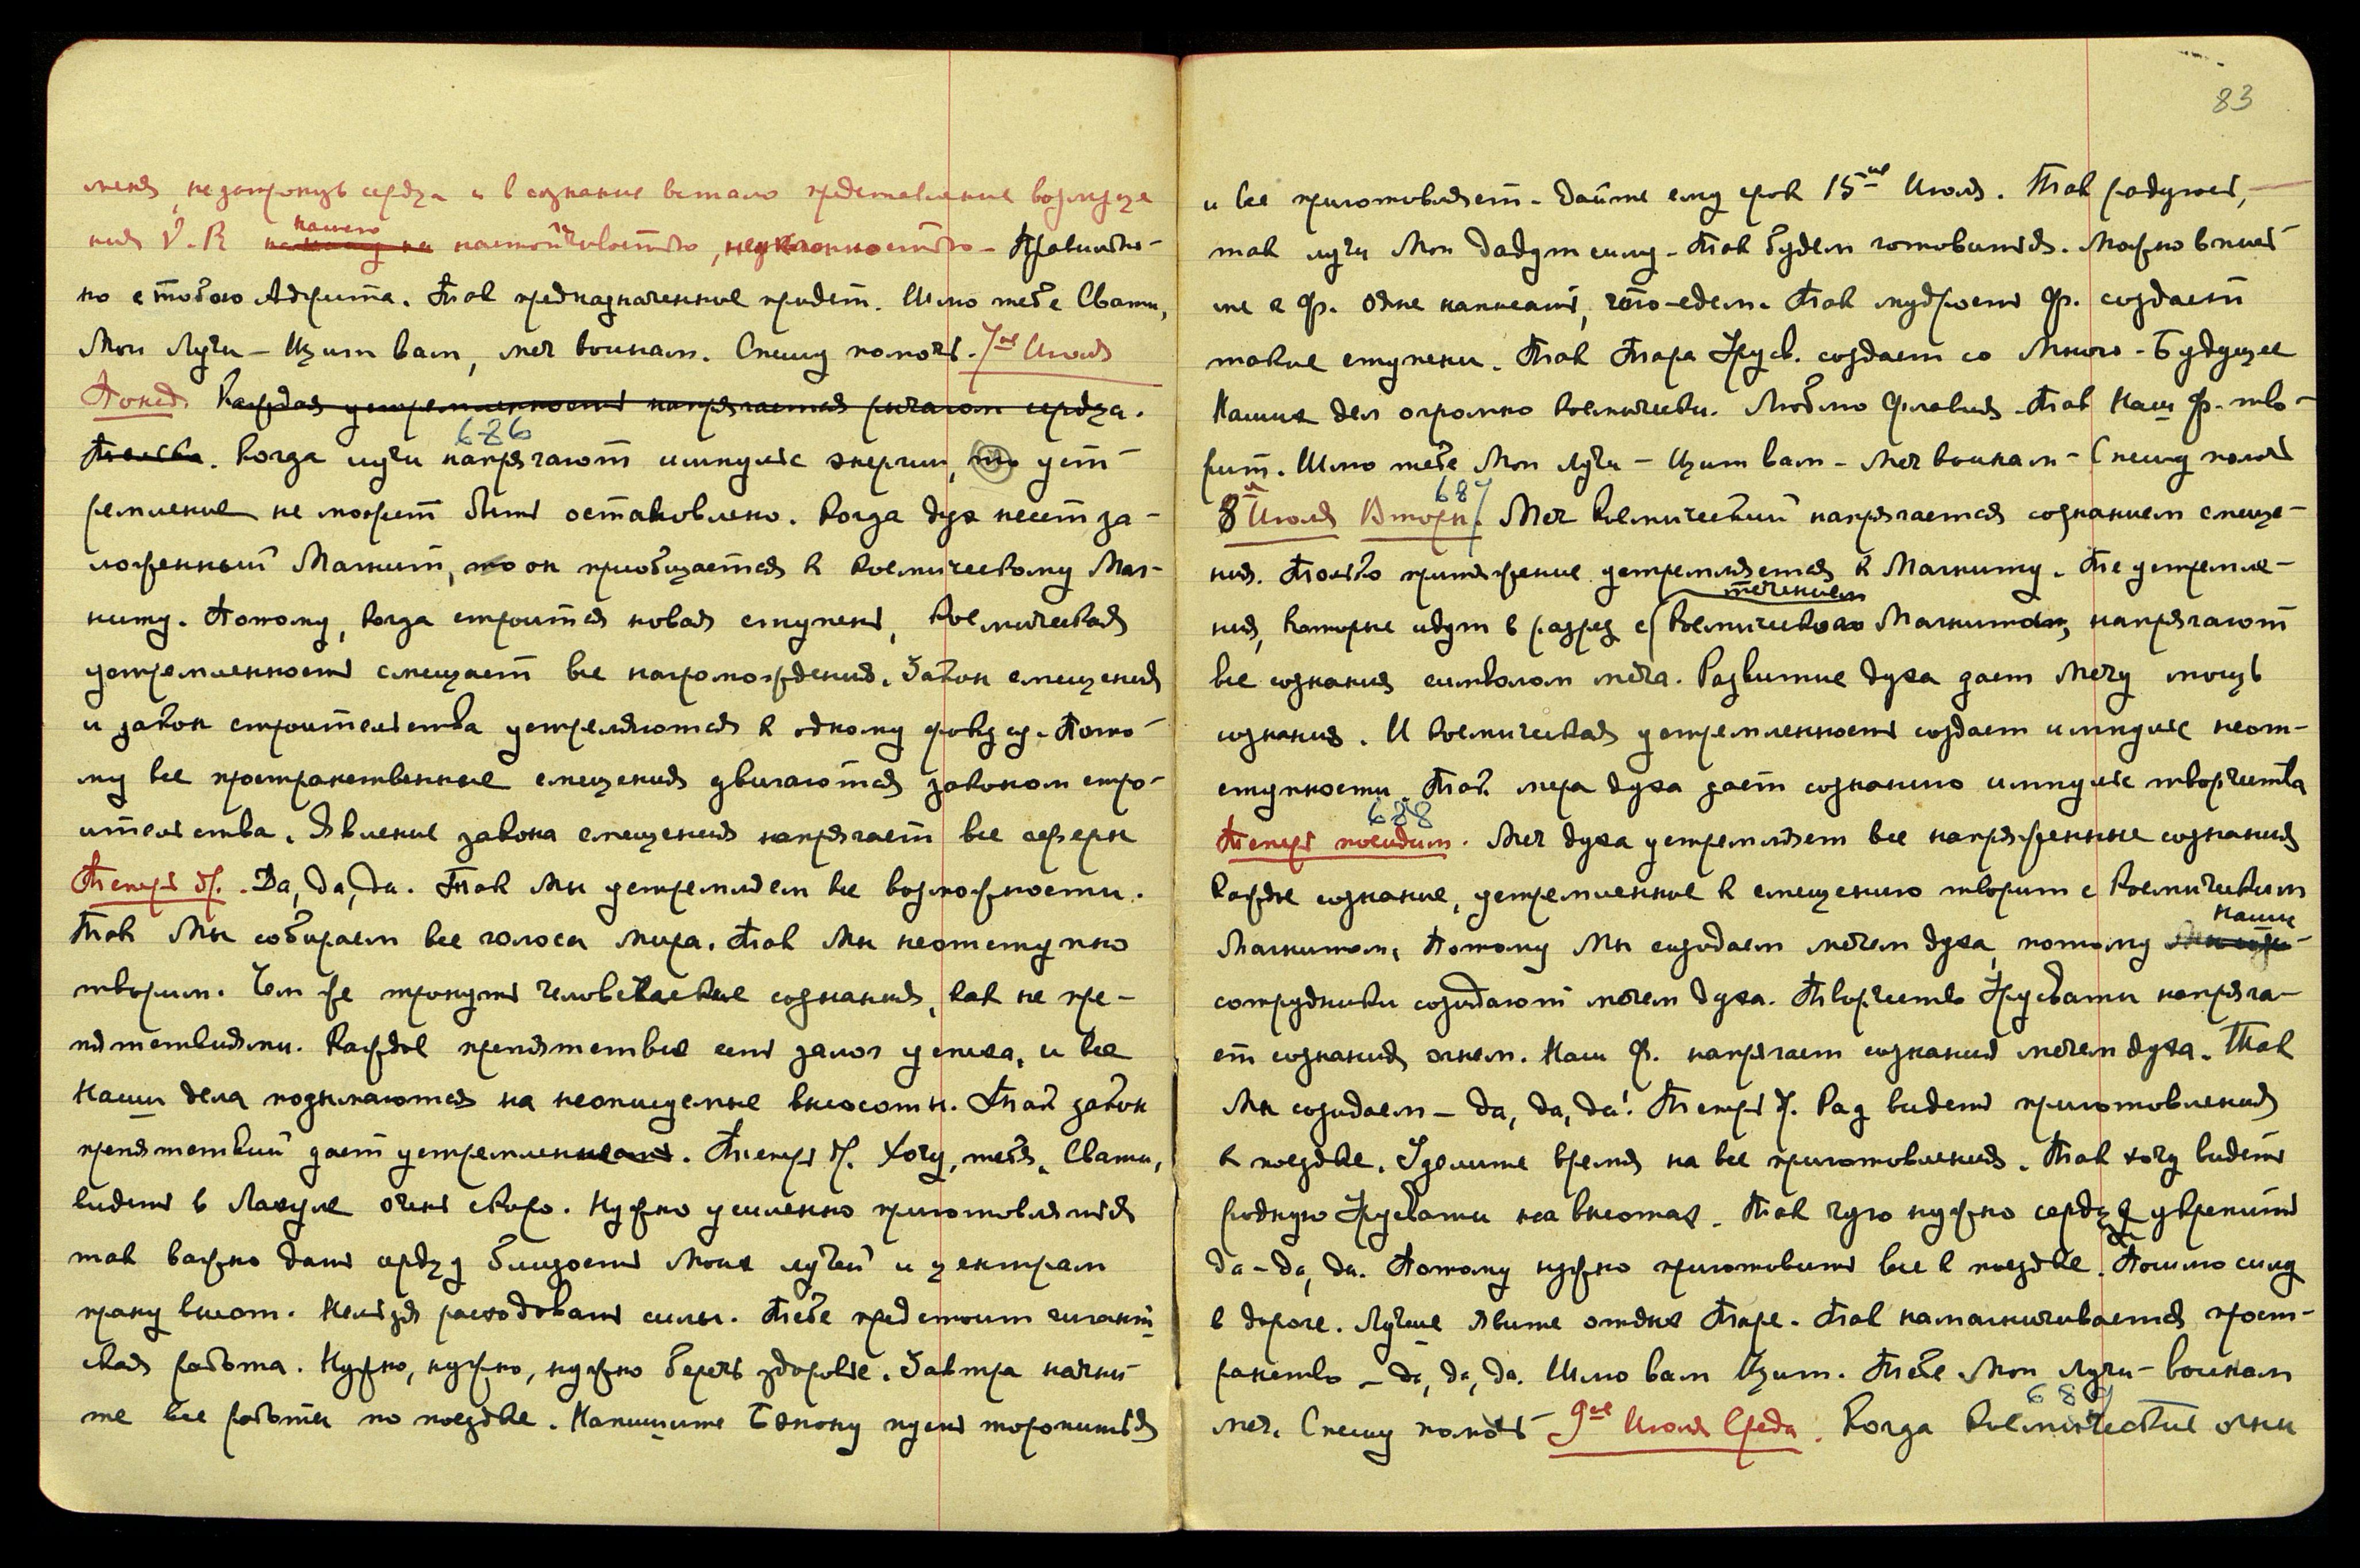 меня, не затронув сердца и в сознание встало представление возмуще
ния V.R нашего настойчивостью, неуклонностью – Правильно –
но с тобою Адурита. Так предназначенное придет. Шлю тебе Свати,
Мои Лучи – Щит вам, меч воинам. Спешу помочь. 7ое Июля
Понед. Каждая устремленность напрягается рычагом сердца.
686
Только. Когда лучи напрягают импульс энергии, то уст–
ремление не может быть остановлено. Когда дух несет за–
ложенный Магнит, то он приобщается к Космическому Маг–
ниту. Потому, когда строится новая ступень, Космическая
устремленность смещает все нагромождения. Закон смещения
и закон строительства устремляются к одному фокусу. Пото–
му все пространственные смещения двигаются законом стро–
ительства. Явление закона смещения напрягает все сферы
Теперь др. Да, да, да. Так Мы устремляем все возможности.
Так Мы собираем все голоса Мира. Так Мы неотступно
творим. Чем же тронуть человеческие сознания, как не пре–
пятствиями. Каждое препятствие есть залог успеха, и все
Наши дела подымаются на неописуемые высоты. Так закон
препятствий дает устремленность. Теперь др. Хочу, тебя, Свати,
видеть в Лахуле очень скоро. Нужно усиленно приготовляться
так важно дать сердцу близость Моих лучей и центрам
прану высот. Нельзя расходовать силы. Тебе предстоит гигант–
ская работа. Нужно, нужно, нужно беречь здоровье. Завтра начни–
те все работы по поездке. Напишите Бэнону пусть торопится
83
и все приготовляет – дайте ему срок 15ое Июля. Так радуюсь, –
так лучи Мои дадут силу – Так будем готовиться. Можно выпи
те с Ф. Одне написать, что – едем. Так мудрость Ф. создает
такие ступени. Так Тара Урусв. создает со Мною – Будущее
Наших дел огромно космически. Люблю Флавия – Так Наш Ф. тво–
рит. Шлю тебе Мои Лучи – Щит вам – Меч воинам – Спешу помочь
687
8й Июля Вторн. Меч Космический напрягается сознанием смеще–
ния. Только притяжение устремляется к Магниту. Те устремле–
течением
ния, которые идут в разрез с Космического Магнитом, напрягают
все сознания символом меча. Развитие духа дает Мечу мощь
сознания. И космическая устремленность создает импульс неот–
ступности. Так мера духа дает сознанию импульс творчества
688
Теперь посидим. Меч духа устремляет все напряженные сознания
Каждое сознание, устремленное к смещению творит с Космическим
наши
Магнитом, Потому Мы созидаем мечем духа, потому
сотрудники созидают мечем духа. Творчество Урусвати напряга–
ет сознания огнем. Наш Ф. напрягает сознания мечем духа. Так
Мы созидаем – да, да, да! Теперь др. Рад видеть приготовления
к поездке. Уделите время на все приготовления. Так хочу видеть
родную Урусвати на высотах. Так чую нужно сердце укрепить
да – да, да. Потому нужно приготовить все к поездке. Пошлю силу
в дороге. Лучше явите отдых Таре. Так намагничивается прост–
ранство – да, да, да. Шлю вам Щит. Тебе Мои Лучи – воинам
689
меч. Спешу помочь – 9ое Июля Среда. Когда Космические огни